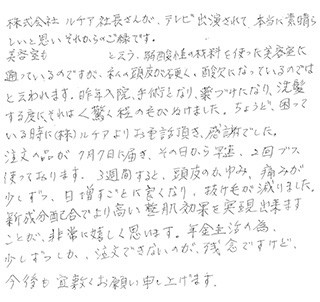 株式会社ルチア社長さんが、テレビ出演されて、本当に素晴ら
しいと思いそれからのご縁です。
美容室も と云う、弱酸性の材料を使った美容室に
通っているのですが、本人の頭皮が硬く、酸欠になっているのでは
と云われます。昨年入院、手術となり、薬づけになり、洗髪
する度にそれはく驚く程の毛がぬけました。ちょうど、困って
いる時に(株)ルチアよりお電話頂き、感謝でした。
注文の品が7月7日に届き、その日から早速、2回プス
使っております。3週間すると、頭皮のかゆみ、痛みが
少しずつ、日増すごとに良くなり、抜け毛が減りました。
新成分配合でより高い整肌効果を実現出来ます
ことが、非常に嬉しく思います。年金生活の為、
少しずつしか、注文できないのが、残念ですけど、
今後も宜敷くお願い申し上げます。